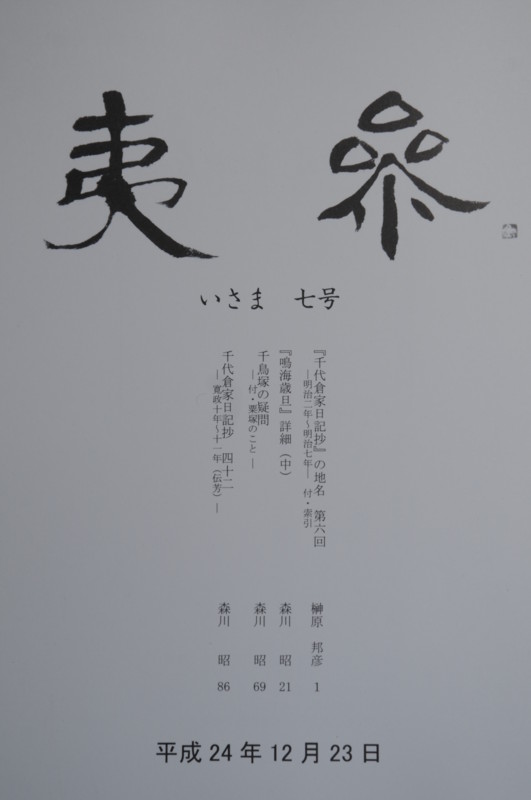 夷參
いさま　七号
『千代倉家日記抄』の地名　第六回
―明治二年～明治七年―　付・索引
榊原　邦彦　1
『鳴海歳旦』詳細（中）
森川　昭　21
千鳥塚の疑問
―付・粟塚のこと―
森川　昭　69
千代倉家日記抄　四十二
―寛政十年～十一年（伝芳）―
森川　昭　86
平成24年12月23日